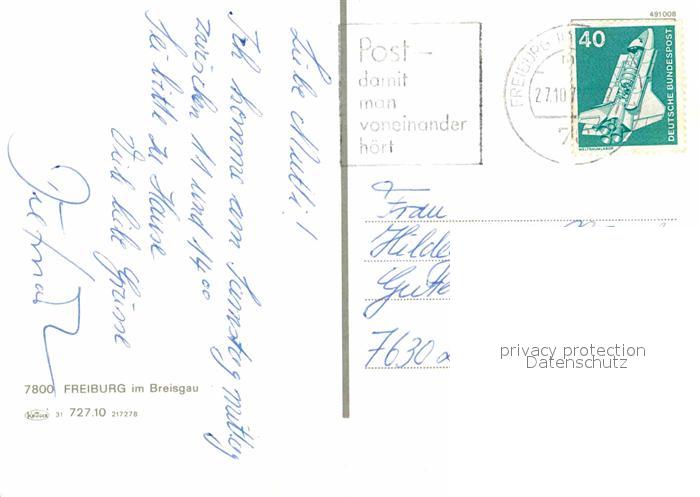 Liebe Mutti!
Ich komme am Samstag mittag
zwischen 11 und 14.00
Sei bitte zu Hause
Viele liebe Grüsse
Dietmar
7800 FREIBURG im Breisgau
Krüger 31 727.10 217278
491008
Post –
damit
man
voneinander
hört
FREIBURG
27.10.7
40
DEUTSCHE BUNDESPOST
WELTRAUMLABOR
Frau
Hilde
Gutte
7630
privacy protection
Datenschutz